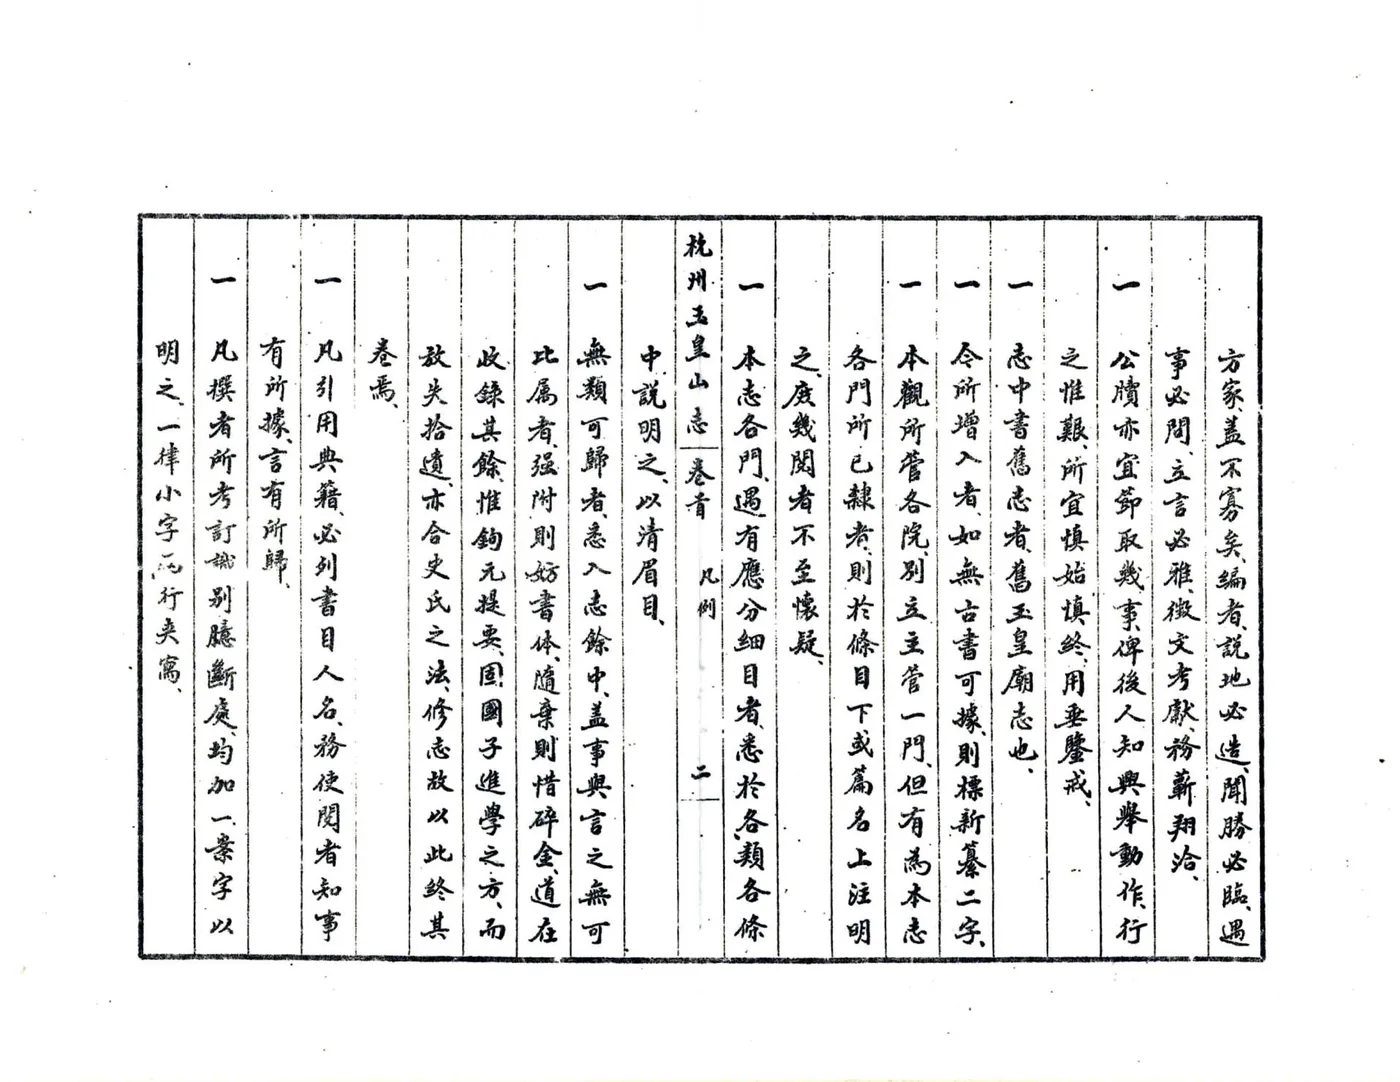 方家、蓋不寡矣、編者、說地必造、聞勝必臨、遇
事必問、立言必雅、徵文考獻、務蘄翔洽、
一 公牘亦宜節取幾事、俾後人知興舉動作、行
之惟艱、所宜慎始慎終、用垂鑒戒、
一 志中書舊志者、舊玉皇廟志也、
一 今所增入者、如無古書可據、則標新纂二字、
一 本觀所管各院、別立主管一門、但有為本志
各門所已隸者、則於條目下或篇名上注明
之、庶幾閱者不至懷疑、
一 本志各門、遇有應分細目者、悉於各類各條
杭州玉皇山志 卷首 凡例 二
中、說明之、以清眉目、
一 無類可歸者、悉入志餘中、蓋事與言之無可
比屬者、强附則妨書体、隨棄則惜碎金、道在
收錄其餘、惟鉤元提要、固國子進學之方、而
放失拾遺、亦合史氏之法、修志故以此終其
卷焉、
一 凡引用典籍、必列書目人名、務使閱者知事
有所據、言有所歸、
一 凡撰者所考訂識別臆斷處、均加一案字以
明之、一律小字兩行夾寫、